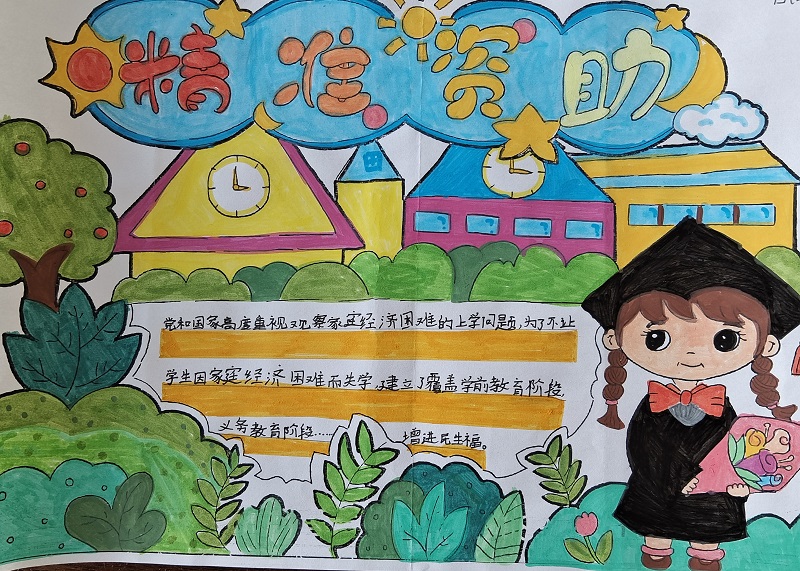 精准资助
党和国家高度重视观察家庭经济困难的上学问题,为了不让
学生因家庭经济困难而失学,建立了覆盖学前教育阶段,
义务教育阶段……增进民生福。